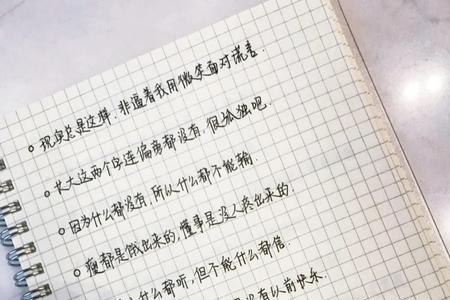 现实总是这样，非逼着我用微笑面对谎言.
长大这两个字连偏旁都没有，很孤独吧.
因为什么都没有，所以什么都不能输.
瘦都是饿出来的，懂事是没人疼出来的.
什么都听，但不能什么都信.
没有以前快乐.